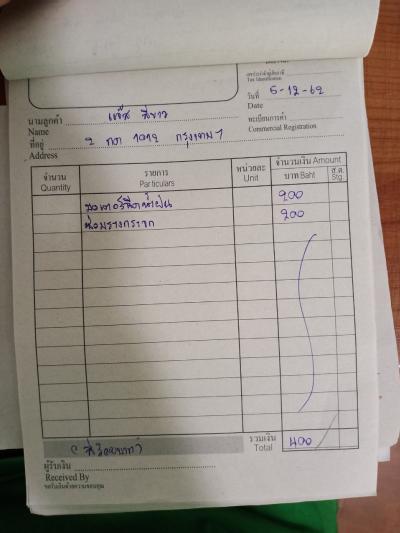 เลขประจำตัวผู้เสียภาษี
Tax Identification
วันที่ 5-12-62
Date
นามลูกค้า เจ๊ส สีขาว
Name
ทะเบียนการค้า
Commercial Registration
ที่อยู่ 2 กต 1012 กรุงเทพฯ
Address
จำนวน รายการ หน่วยละ จำนวนเงิน Amount
Quantity Particulars Unit บาท Baht ส.ต. Stg.
มอเตอร์ฉีดน้ำฝน 200
ซ่อมรางกระจก 200
รวมเงิน
Total 400
(สี่ร้อยบาท)
ผู้รับเงิน
Received By
ขอรับเงินด้วยความขอบคุณ